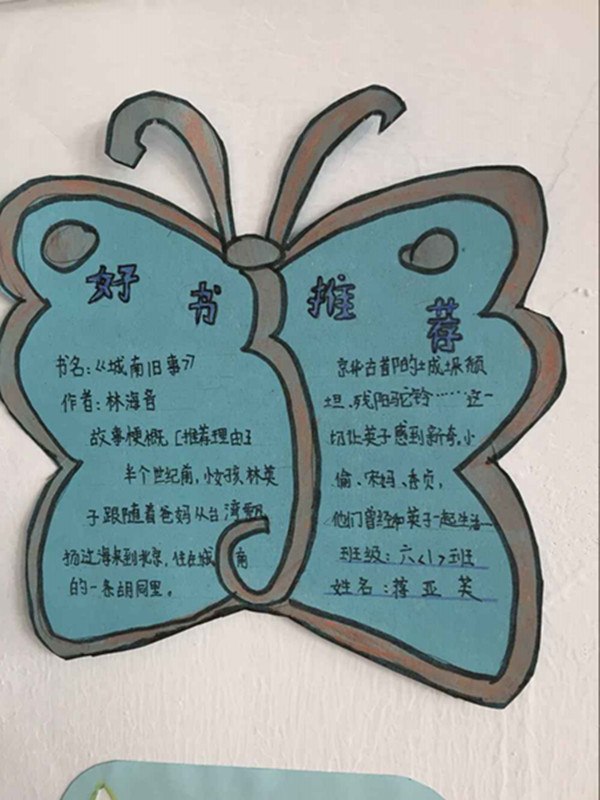 好书推荐
书名:《城南旧事》
作者:林海音
故事梗概,[推荐理由]
半个世纪前,小女孩林英
子跟随着爸妈从台湾飘
扬过海来到北京,住在城南
的一条胡同里。
京华古都的土成垛颓
坦,残阳驼铃……这一
切让英子感到新奇,小
偷、宋妈、秀贞,
他们曾经和英子一起生活…
班级:六<1>班
姓名:蒋亚芙